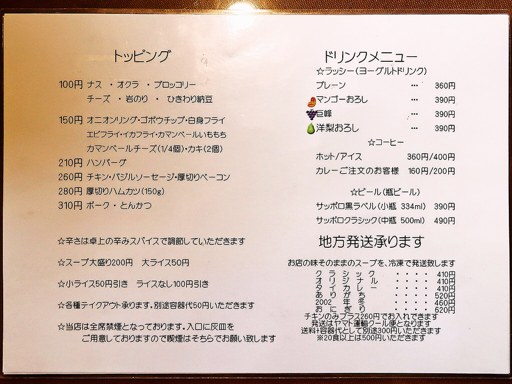 トッピング
100円 ナス ・ オクラ ・ ブロッコリー
チーズ ・ 岩のり ・ ひきわり納豆
150円 オニオンリング・ゴボウチップ・白身フライ
エビフライ・イカフライ・カマンベールいももち
カマンベールチーズ(1/4個)・カキ(2個)
210円 ハンバーグ
260円 チキン・バジルソーセージ・厚切りベーコン
280円 厚切りハムカツ(150g)
310円 ポーク・とんかつ
☆辛さは卓上の辛みスパイスで調節していただきます
☆スープ大盛り200円 大ライス50円
☆小ライス50円引き ライスなし100円引き
☆各種テイクアウト承ります。別途容器代50円いただきます
☆当店は全席禁煙となっております。入口に灰皿を
ご用意しておりますので喫煙はそちらでお願い致します
ドリンクメニュー
☆ラッシー(ヨーグルトドリンク)
プレーン … 360円
マンゴーおろし … 390円
巨峰 … 390円
洋梨おろし … 390円
☆コーヒー
ホット/アイス 360円/400円
カレーご注文のお客様 160円/200円
☆ビール(瓶ビール)
サッポロ黒ラベル(小瓶 334ml) 390円
サッポロクラシック(中瓶 500ml) 490円
地方発送承ります
お店の味そのままのスープを、冷凍で発送致します
クラシック ・・・・ 410円
オリジナル ・・・・ 410円
タイカレー ・・・・ 410円
ありがち ・・・・ 520円
2002年冬 ・・・・ 460円
おにぎり ・・・・ 620円
チキンのみプラス260円でお入れできます
発送はヤマト運輸クール便となります
送料+容器代として別途300円いただきます
※20食以上は500円いただきます